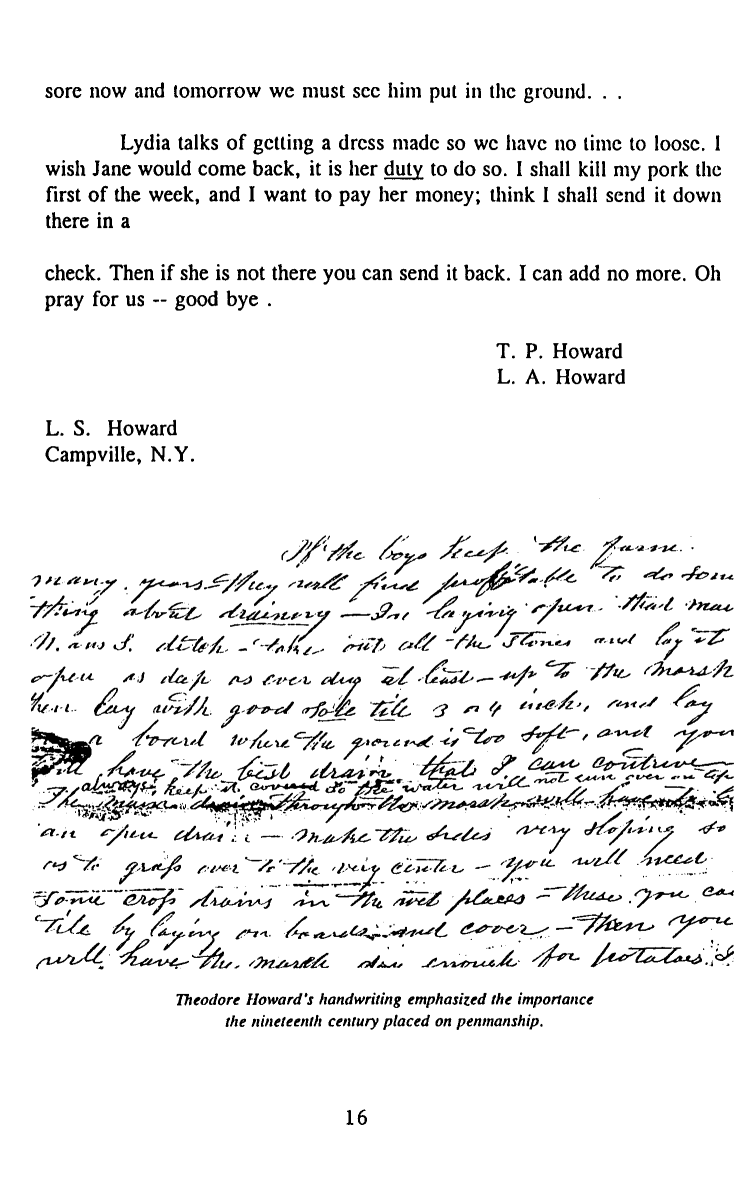 sore now and tomorrow we must see him put in the ground. . .
Lydia talks of getting a dress made so we have no time to loose. I
wish Jane would come back, it is her duty to do so. I shall kill my pork the
first of the week, and I want to pay her money; think I shall send it down
there in a
check. Then if she is not there you can send it back. I can add no more. Oh
pray for us -- good bye .
T. P. Howard
L. A. Howard
L. S. Howard
Campville, N.Y.
If the boys keep the farm
many years they will find profitable to do som
thing about draining — In laying open that
N. and S. ditch - take out all the stones and lay it
open as deep as ever dug at least - up to the marsh
then lay with good sole tile 3 or 4 inch, and lay
a board where the ground is too soft, and you
will have the best drain that I can contrive
always keep it covered so the water will not run over on top
The main drain through the marsh will have to be
an open drain - make the sides very sloping so
as to grass over to the very center - you will need
some cross drains in the wet places - these you can
tile by laying on boards and cover - Then you
will have the marsh dry enough for potatoes
Theodore Howard's handwriting emphasized the importance
the nineteenth century placed on penmanship.
16